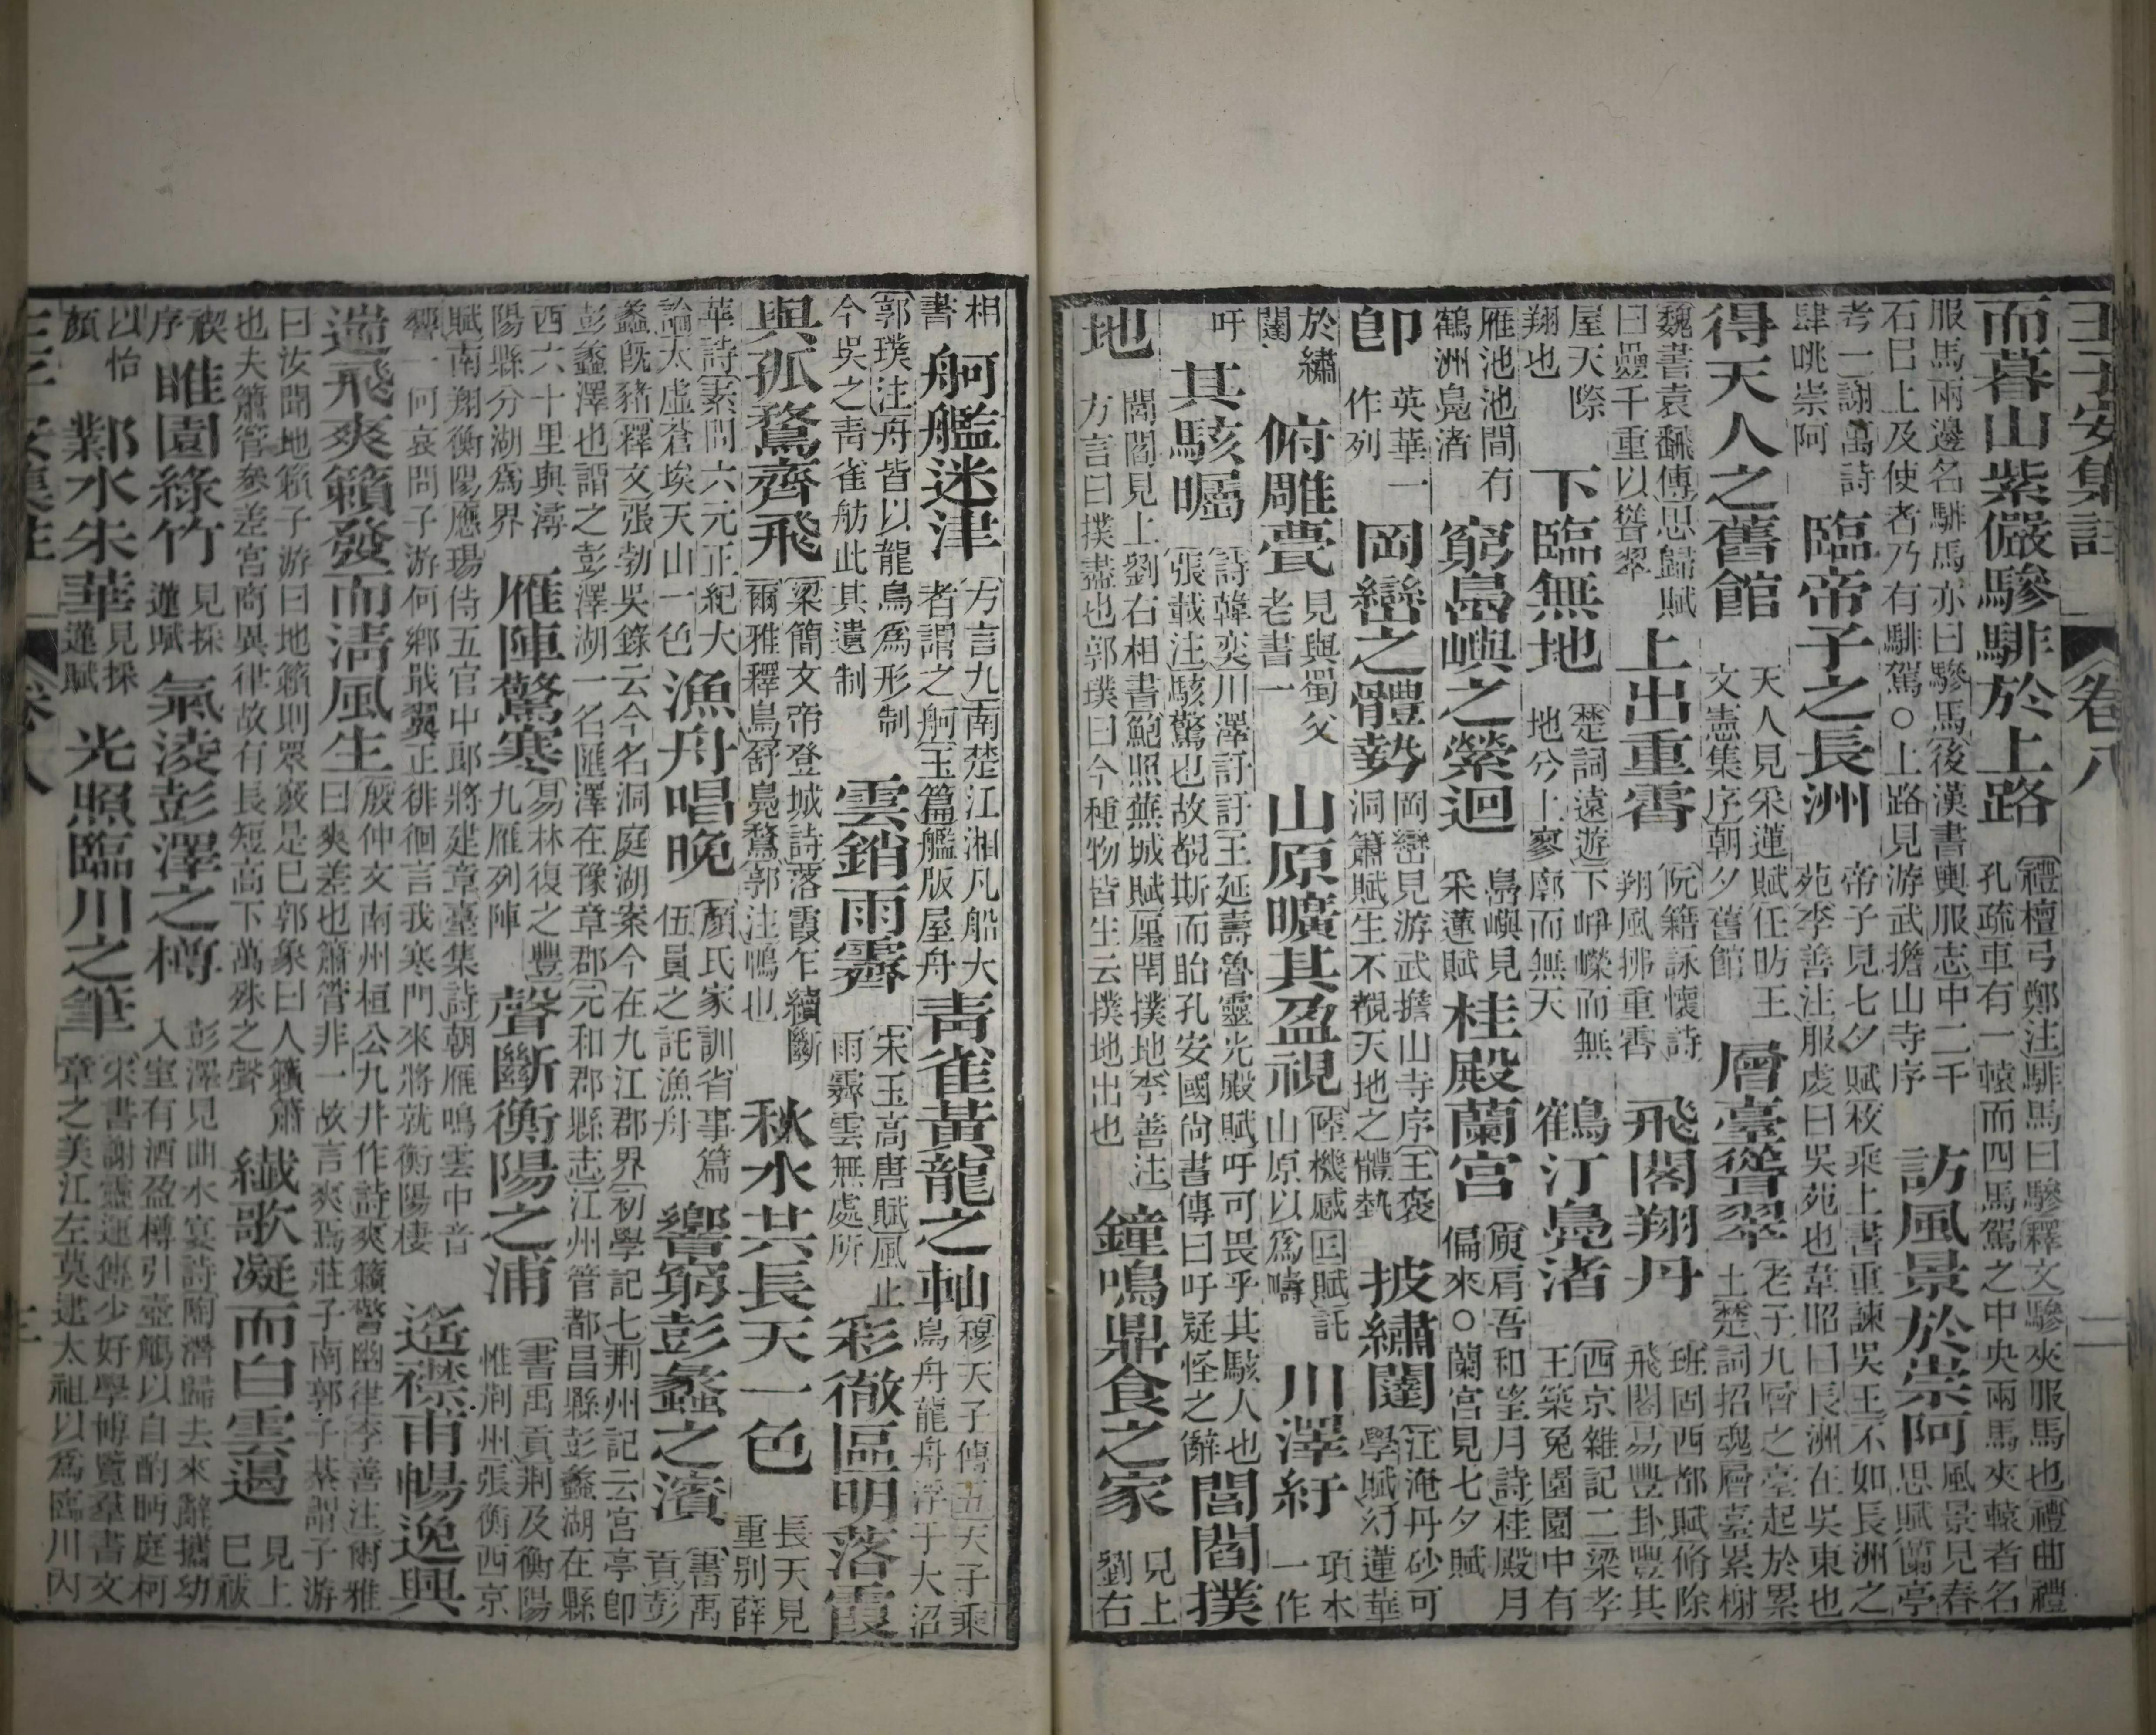 王子安集註 卷八 二
而暮山紫儼驂騑於上路 禮檀弓鄭注騑馬曰驂釋文驂夾服馬也禮曲禮孔疏車有一轅而四馬駕之中央兩馬夾轅者名
服馬兩邊名騑馬亦曰驂馬後漢書輿服志中二千石巳上及使者乃有騑駕○上路見游武擔山寺序 訪風景於崇阿 風景見春思賦蘭亭
考二謝萬詩肆眺崇阿 臨帝子之長洲 帝子見七夕賦枚乘上書重諫吳王不如長洲之苑李善注服虔曰吳苑也韋昭曰長洲在吳東也
得天人之舊館 天人見采蓮賦任昉王文憲集序朝夕舊館 層臺聳翠 老子九層之臺起於累土楚詞招魂層臺累榭
魏書袁飜傳思歸賦曰疊千重以聳翠 上出重霄 阮籍詠懷詩翔風拂重霄 飛閣翔丹 班固西都賦脩除飛閣易豐卦豐其
屋天際翔也 下臨無地 楚詞遠遊下崢嶸而無地兮上寥廓而無天 鶴汀鳧渚 西京雜記二梁孝王築兔園園中有
雁池池間有鶴洲鳧渚 窮島嶼之縈迴 島嶼見采蓮賦 桂殿蘭宮 庾肩吾和望月詩桂殿月偏來○蘭宮見七夕賦
卽 英華一作列 岡巒之體勢 岡巒見游武擔山寺序王褒洞簫賦生不覩天地之體勢 披繡闥 江淹丹砂可學賦幻蓮華
於繡闥 俯雕甍 見與蜀父老書一 山原曠其盈視 陸機感囚賦託山原以爲疇 川澤紆 項本一作
吁 其駭矚 詩韓奕川澤訏訏王延壽魯靈光殿賦吁可畏乎其駭人也張載注駭驚也故覩斯而眙孔安國尚書傳曰吁疑怪之辭 閭閻撲
地 閭閻見上劉右相書鮑照蕪城賦廛閈撲地李善注方言曰撲盡也郭璞曰今種物皆生云撲地出也 鐘鳴鼎食之家 見上劉右
相書 舸艦迷津 方言九南楚江湘凡船大者謂之舸玉篇艦版屋舟 靑雀黃龍之舳 穆天子傳五天子乘鳥舟龍舟浮于大沼
郭璞注舟皆以龍鳥爲形制今吳之靑雀舫此其遺制 雲銷雨霽 宋玉高唐賦風止雨霽雲無處所 彩徹區明落霞
與孤鶩齊飛 梁簡文帝登城詩落霞乍續斷爾雅釋鳥舒鳧鶩郭注鴨也 秋水共長天一色 長天見重別薛
華詩素問六元正紀大論太虛蒼埃天山一色 漁舟唱晚 顏氏家訓省事篇伍員之託漁舟 響窮彭蠡之濱 書禹貢彭
蠡旣豬釋文張勃吳錄云今名洞庭湖案今在九江郡界初學記七荊州記云宮亭卽彭蠡澤也謂之彭澤湖一名匯澤在豫章郡元和郡縣志江州管都昌縣彭蠡湖在縣
西六十里與潯陽縣分湖爲界 雁陣驚寒 易林復之豐九雁列陣 聲斷衡陽之浦 書禹貢荊及衡陽惟荊州張衡西京
賦南翔衡陽應瑒侍五官中郎將建章臺集詩朝雁鳴雲中音響一何哀問子游何鄉戢翼正徘徊言我寒門來將就衡陽棲 遙襟甫暢逸興
遄飛爽籟發而淸風生 殷仲文南州桓公九井作詩爽籟警幽律李善注爾雅曰爽差也簫管非一故言爽焉莊子南郭子綦謂子游
曰汝聞地籟子游曰地籟則衆竅是巳郭象曰人籟簫也夫簫管參差宮商異律故有長短高下萬殊之聲 纖歌凝而白雲遏 見上巳祓
禊序 睢園綠竹 見採蓮賦 氣淩彭澤之樽 彭澤見曲水宴詩陶潛歸去來辭攜幼入室有酒盈樽引壺觴以自酌眄庭柯
以怡顏 鄴水朱華 見採蓮賦 光照臨川之筆 宋書謝靈運傳少好學博覽羣書文章之美江左莫逮太祖以爲臨川內